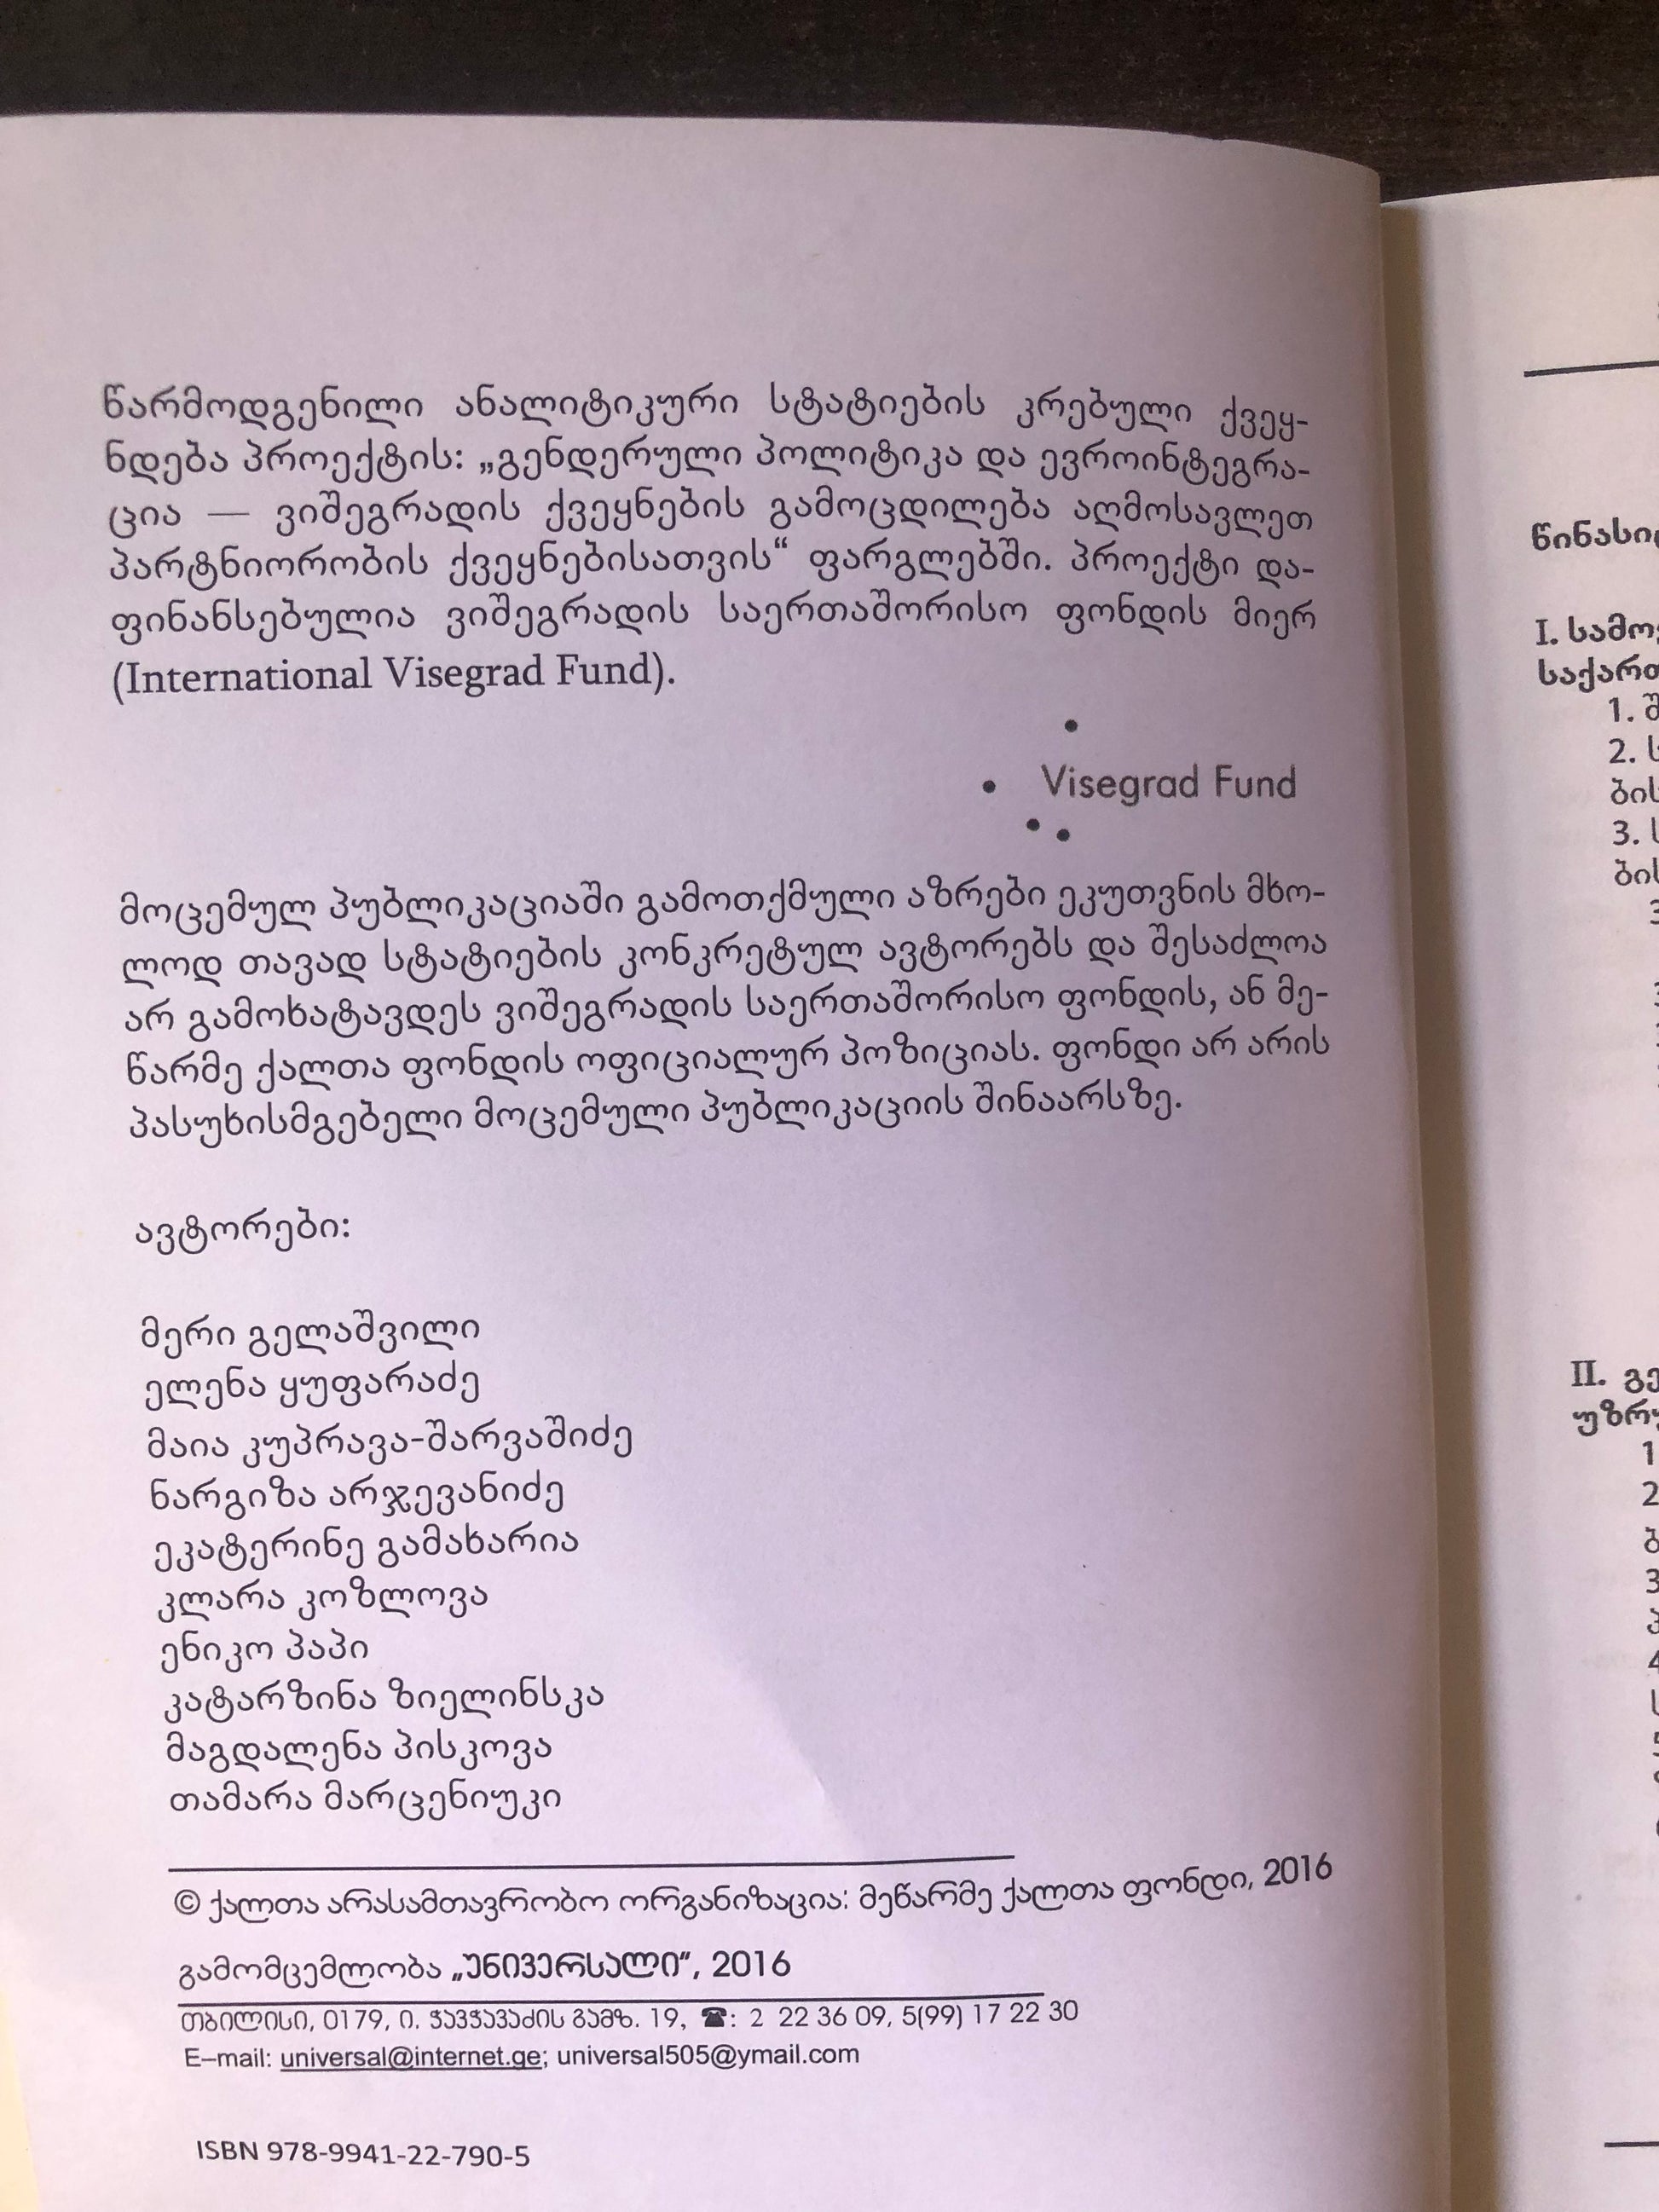 წარმოდგენილი ანალიტიკური სტატიების კრებული ქვეყ-
ნდება პროექტის: „გენდერული პოლიტიკა და ევროინტეგრა-
ცია — ვიშეგრადის ქვეყნების გამოცდილება აღმოსავლეთ
პარტნიორობის ქვეყნებისათვის“ ფარგლებში. პროექტი და-
ფინანსებულია ვიშეგრადის საერთაშორისო ფონდის მიერ
(International Visegrad Fund).
Visegrad Fund
მოცემულ პუბლიკაციაში გამოთქმული აზრები ეკუთვნის მხო-
ლოდ თავად სტატიების კონკრეტულ ავტორებს და შესაძლოა
არ გამოხატავდეს ვიშეგრადის საერთაშორისო ფონდის, ან მე-
წარმე ქალთა ფონდის ოფიციალურ პოზიციას. ფონდი არ არის
პასუხისმგებელი მოცემული პუბლიკაციის შინაარსზე.
ავტორები:
მერი გელაშვილი
ელენა ყუფარაძე
მაია კუპრავა-შარვაშიძე
ნარგიზა არჯევანიძე
ეკატერინე გამახარია
კლარა კოზლოვა
ენიკო პაპი
კატარზინა ზიელინსკა
მაგდალენა პისკოვა
თამარა მარცენიუკი
© ქალთა არასამთავრობო ორგანიზაცია: მეწარმე ქალთა ფონდი, 2016
გამომცემლობა „უნივერსალი“, 2016
თბილისი, 0179, ი. ჭავჭავაძის გამზ. 19, ☎: 2 22 36 09, 5(99) 17 22 30
E–mail: universal@internet.ge; universal505@ymail.com
ISBN 978-9941-22-790-5
I.
1.
2.
3.
II.
1
2
3